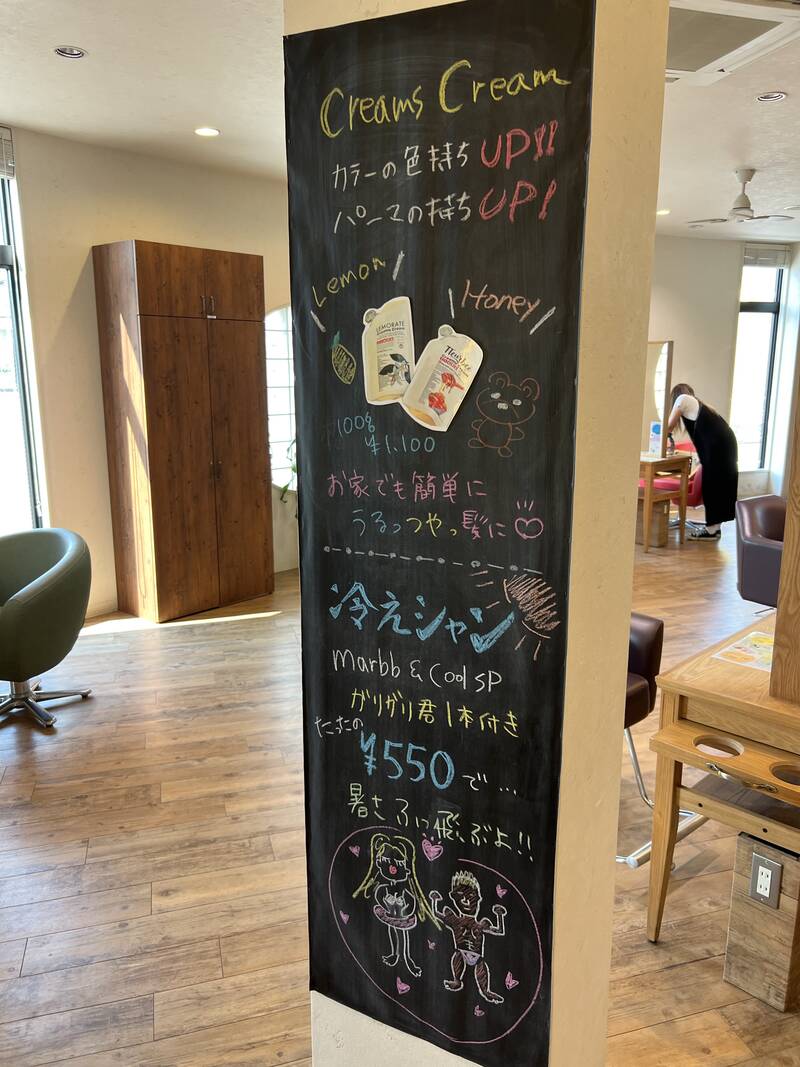 Creams Cream
カラーの色持ちUP!!
パーマの持ちUP!
Lemon
Honey
LEMORATE
100g
¥1,100
お家でも簡単に
うるっつやっ髪に
冷えシャン
marbb & Cool SP
ガリガリ君1本付き
たったの
¥550で…
暑さふっ飛ぶよ!!